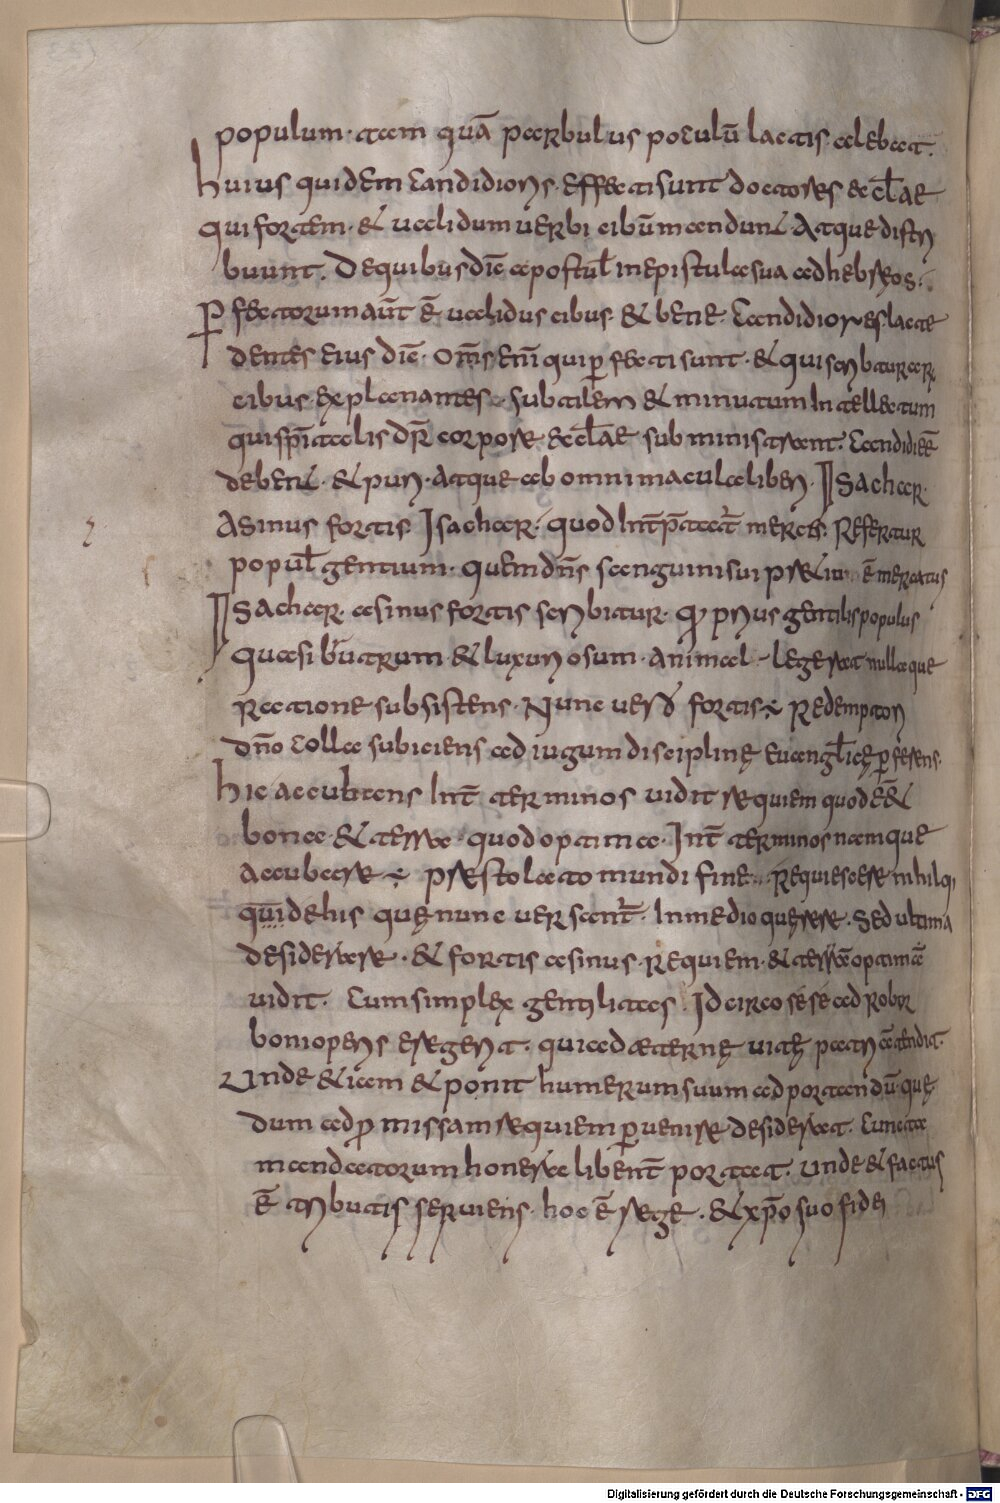 populum· tam quā paruulus poculū lactis· alebat·
huius quidem candidiores· effecti sunt doctores eclae
qui fortem· & ualidum uerbi cibū mandunt· Atque distri
buunt· De quibus dīc apostul in epistula sua ad hebreos·
Perfectorum aūt ē ualidus cibus· & bene· Candidiores lacte
dentes eius dīc· Om̄s eni qui perfecti sunt· & qui scribturar
cibus explanantes· subtilem & minutum intellectum
qui spītalis dr̄ corpore eclae subministrant· Candidi eē
debent· & puri· Atque ab omni macula liberi· Isachar·
Asinus fortis Isachar· quod Int̄p̄tat mercis· Refertur
popul gentium· quem dn̄s sanguinis sui prætio ē mercatus
Isachar· asinus fortis scribitur· quo prius gentilis populus
quasi brutum & luxuriosum· animal· legerat nullaque
Ractione subsistens· Nunc uero fortis· Redemptori
dn̄o colla subiciens ad iugum disciplinę euangl̄icę perferens·
hic accubans Int̄ terminos uidit requiem quod eēt
bona· & terra· quod optima· Int̄ terminos namque
accubare· præstolato mundi fine· Requiescere nihilq;
quidehis quę nunc uersant̄· In medio querere· Sed ultima
desiderare· & fortis asinus· Requiem· & terrā optimā
uidit· Cum simplex gentilitas· Idcirco sese ad robor
boni operis eregerit· qui ad æternę uitę patriā tendit·
Unde & iam & ponit humerum suum ad portandū· quę
dum ad promissam requiem peruenire desiderat· Cuncta
mandatorum honera libent̄ portat· unde & factus
ē tributis seruiens· hoc ē rege· & xp̄o suo fidei
Digitalisierung gefördert durch die Deutsche Forschungsgemeinschaft - DFG